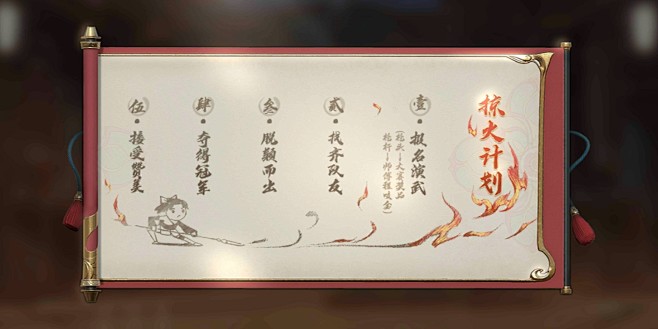 掠火计划
壹
报名演武
(枪头→大赛奖品
枪杆→师傅程咬金)
贰
找齐队友
叁
脱颖而出
肆
夺得冠军
伍
接受赞美